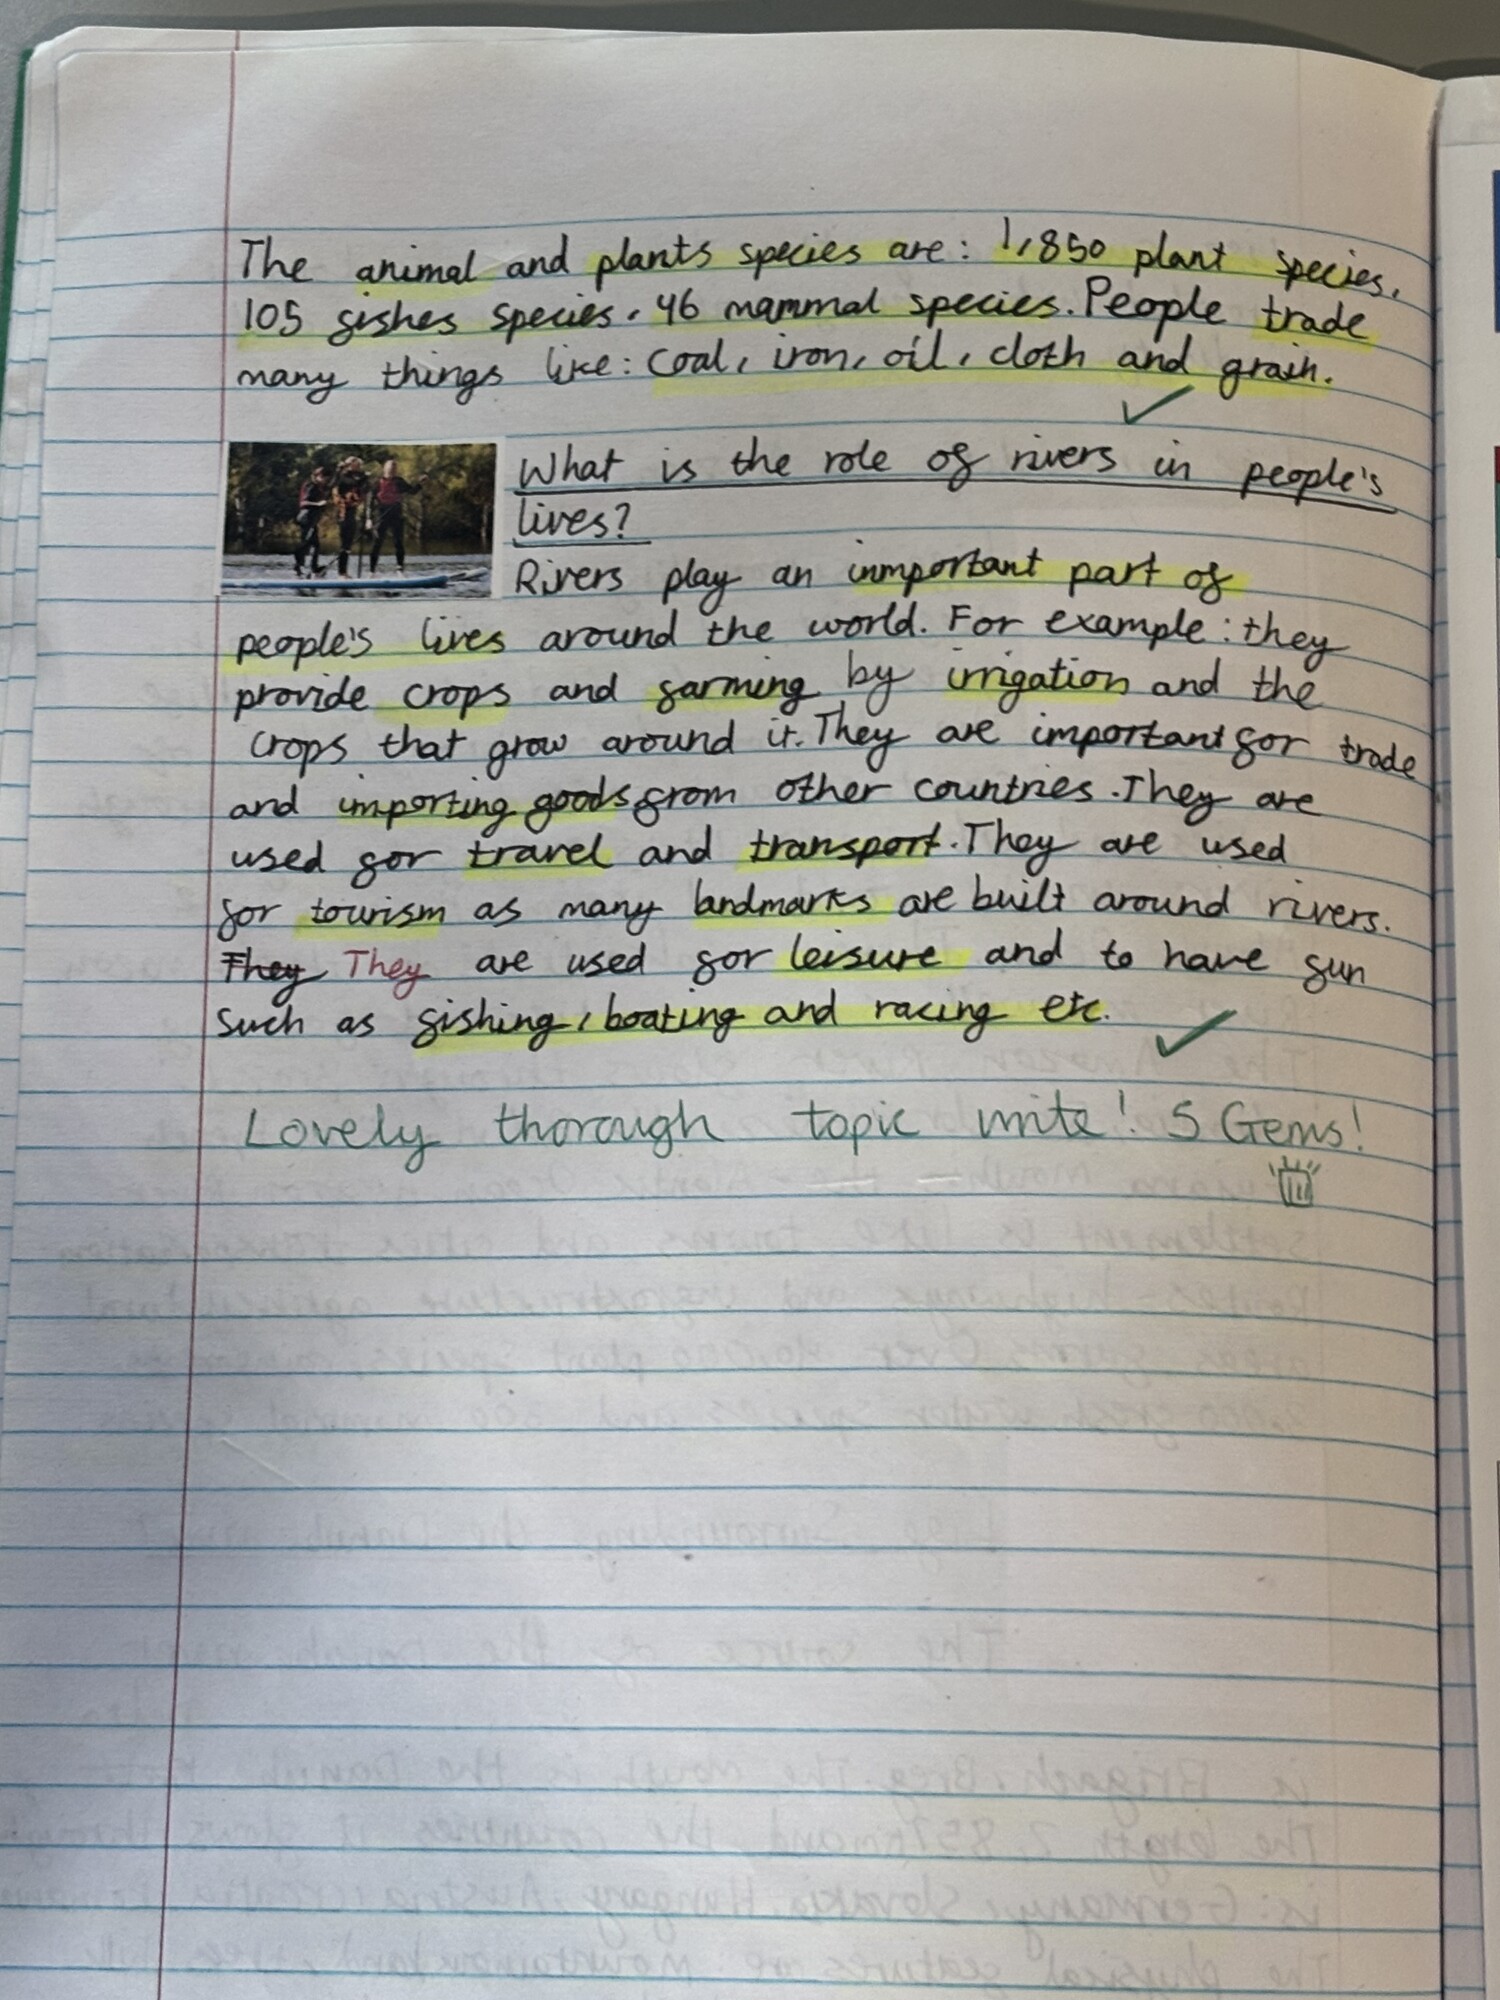 The animal and plants species are: 1,850 plant species,
105 fishes species, 46 mammal species. People trade
many things like: coal, iron, oil, cloth and grain.
What is the role of rivers in people's
lives?
Rivers play an inmportant part of
people's lives around the world. For example: they
provide crops and farming by irrigation and the
crops that grow around it. They are important for trade
and importing goods from other countries. They are
used for travel and transport. They are used
for tourism as many landmarks are built around rivers.
They They are used for leisure and to have fun
such as fishing, boating and racing etc.
Lovely thorough topic write! 5 Gems!